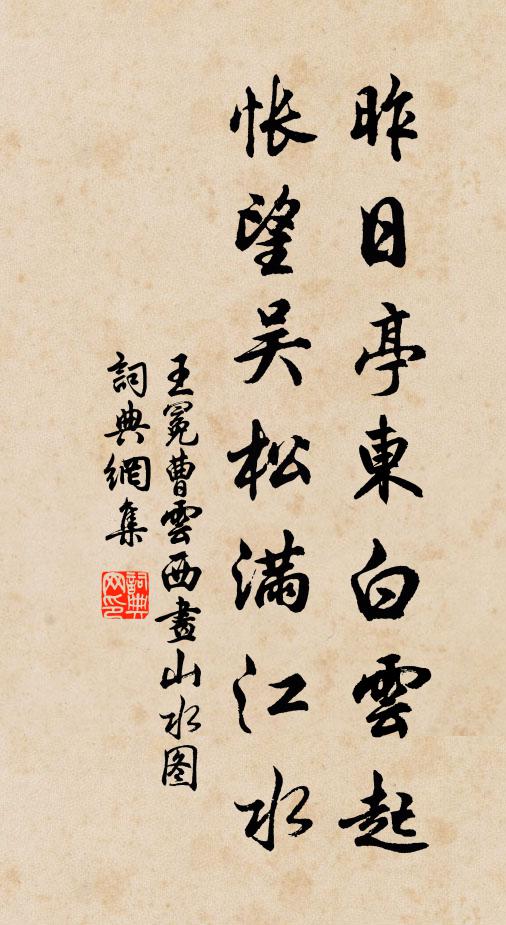 昨日亭東白雲起
悵望吴松满江水
王冕曹雲西畫山水图
詞典網集
詞典网印